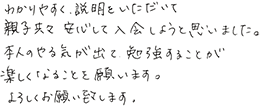 わかりやすく、説明をいただいて
親子共々安心して入会しようと思いました。
本人のやる気が出て、勉強することが
楽しくなることを願います。
よろしくお願い致します。